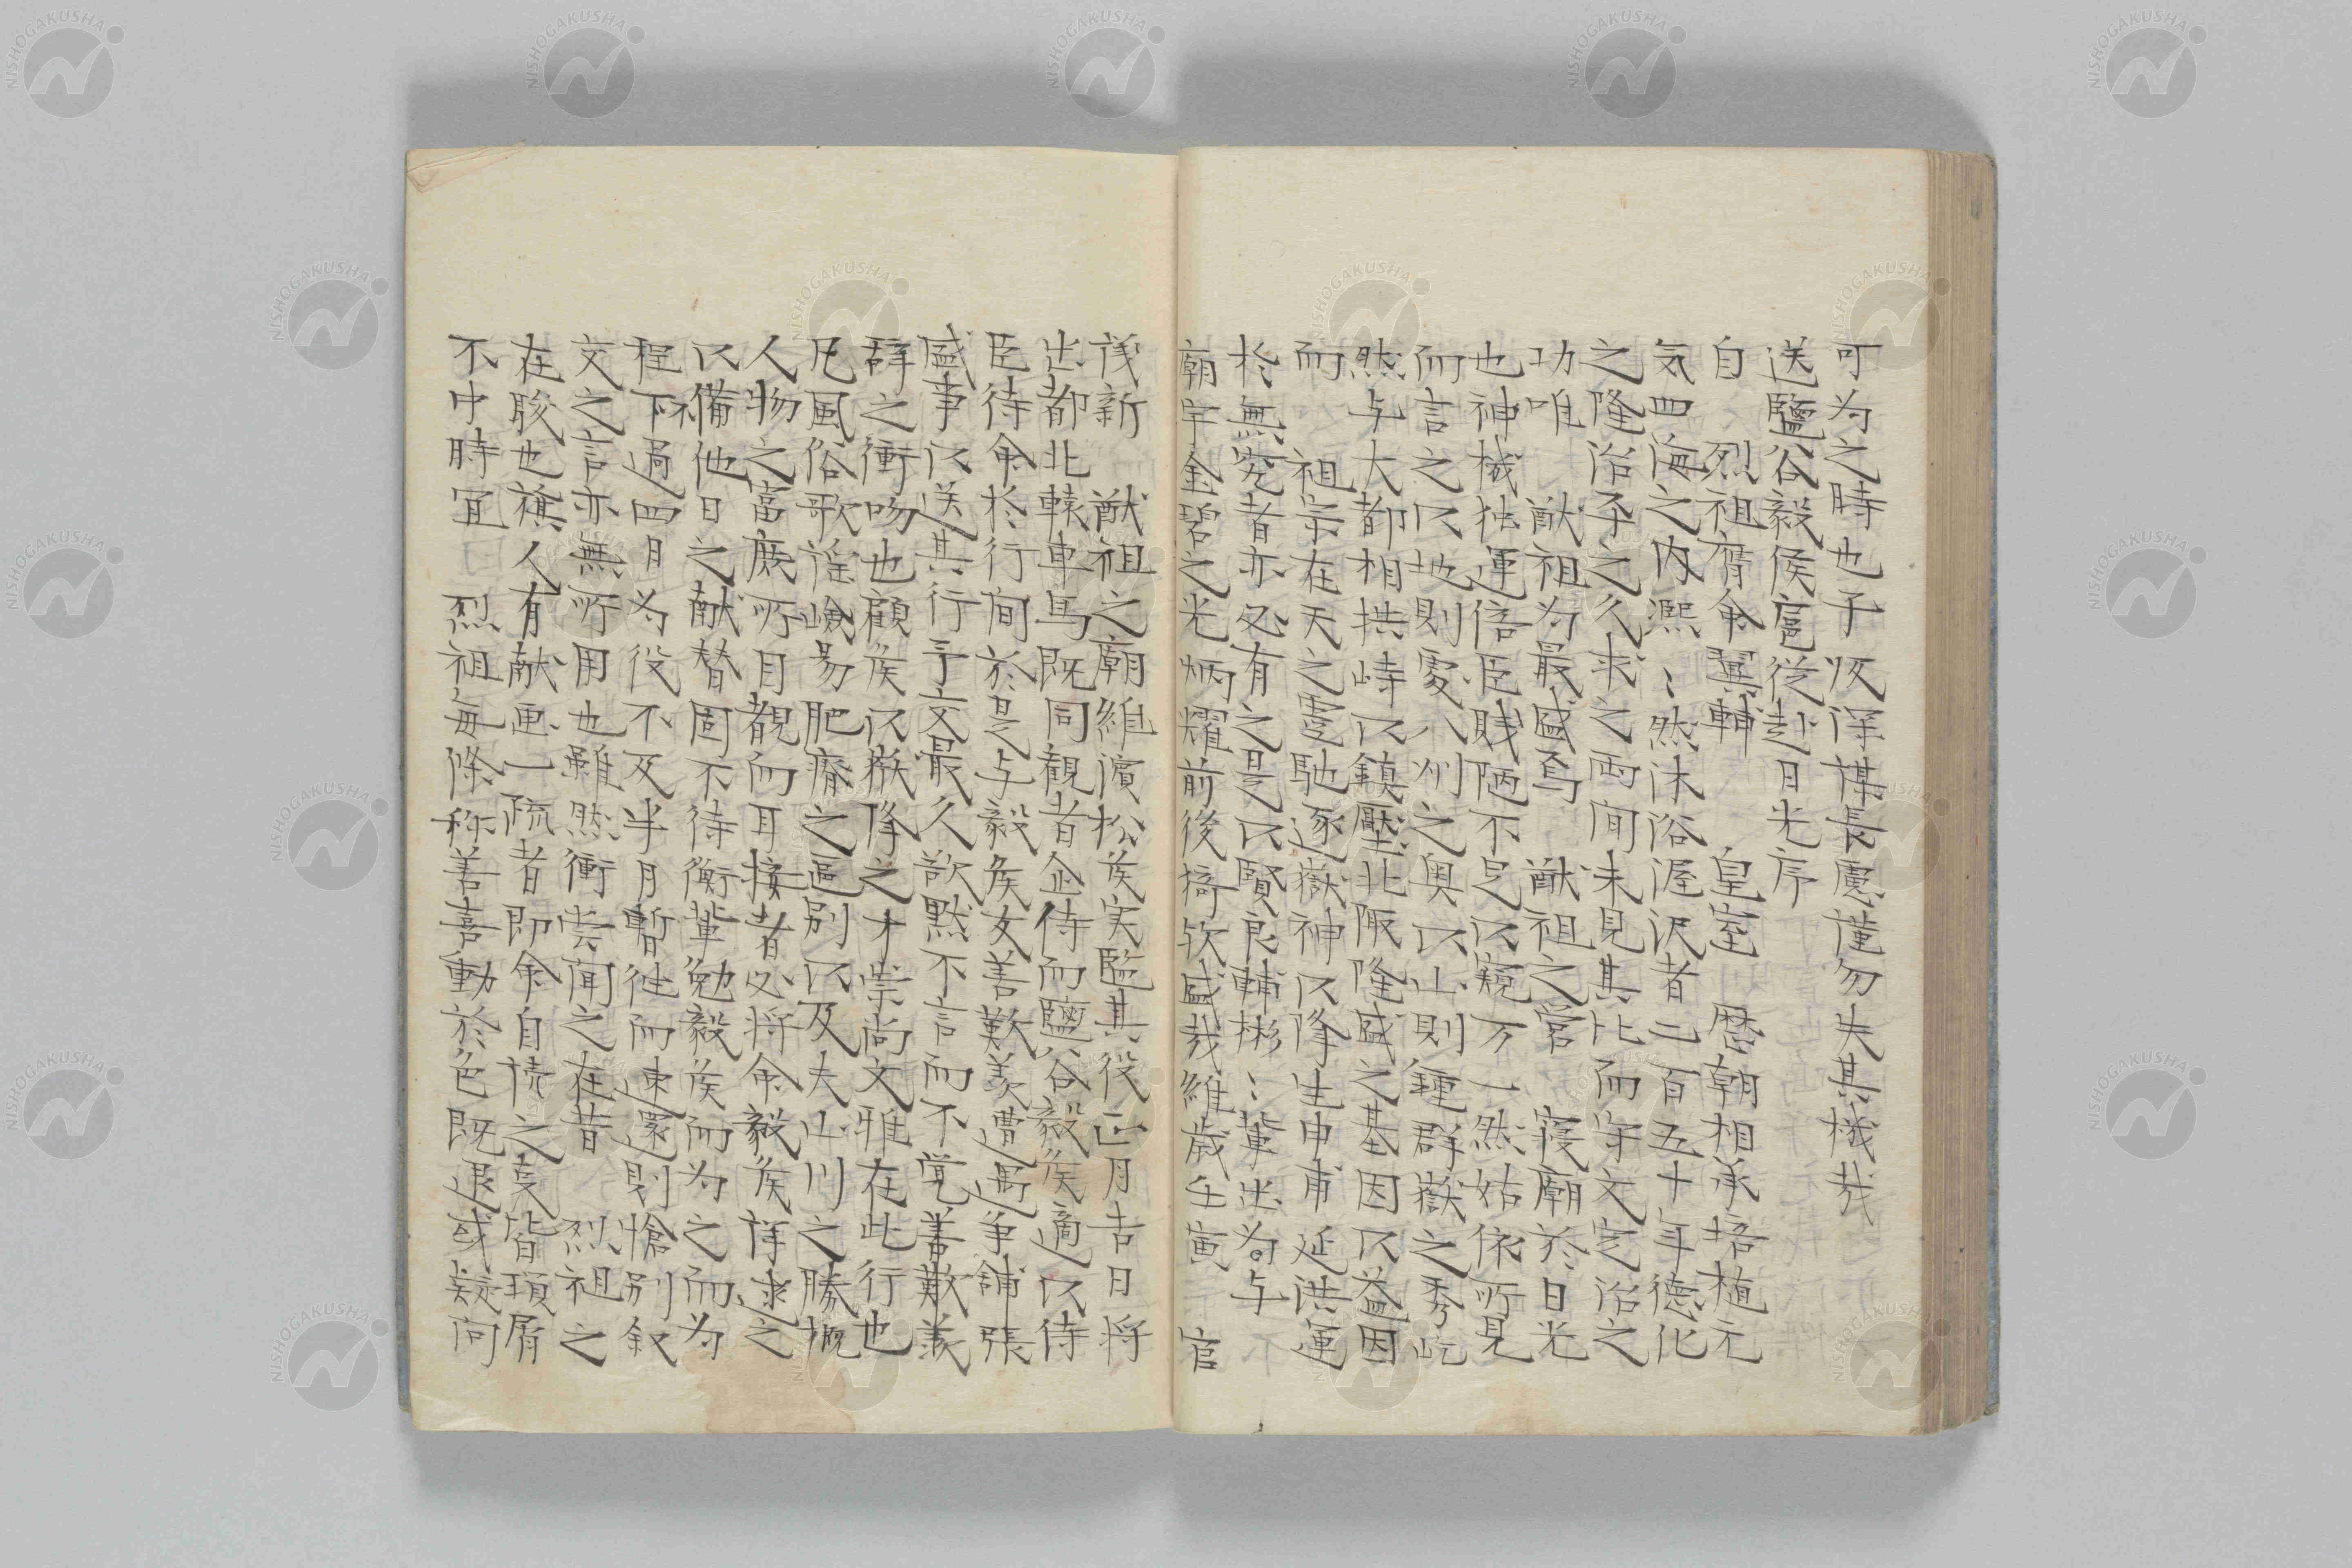 可为之時也予収深謀長慮謹勿失其機哉
送鹽谷毅侯扈従赴日光序
自 烈祖膺命翼輔 皇室 歴朝相承培植元
気四海之内熙〻然沐俗渥沢者二百五十年德化
之隆治平之久求之両间未見其比而守文之治之
功唯 猷祖为最盛焉 猷祖之営 寝廟於日光
也神機独運倍臣賎陋不足以窺万一然姑依所見
而言之以地則処八州之奥以山則鍾群嶽之秀屹
然与大都相拱峙以鎮壓北陬隆盛之基因以益因
而 祖宗在天之霊馳逐嶽神以降生申甫延洪運
於無窮者亦必有之是以賢良輔彬〻輩出为与
廟宇金碧之光炳耀前後猗欤盛哉維歳壬寅 官
茂新 猷祖之廟維濱松矦実監其役正月吉日将
出都北轅車馬既同観者企待而鹽谷毅矦適以侍
臣待命於行间於是与毅矦友善歎羨遭遇争舗張
盛事以送其行予文最久欲黙不言而不覚善歎羨
群之衝吻也顧矦以嶽降之才崇尚文雅在此行也
凡風俗歌謡嶮易肥瘠之區别以及夫山川之勝概
人物之富庶所目覩而耳接者必将命毅矦詳逑之
以備他日之献替固不待衡輩勉毅矦而为之而为
程下過四月为役不及半月暫徃而速還則愴别叙
文之言亦無所用也雖然衝嘗闻之在昔 烈祖之
在駿也旗人有献画一疏者即命自読之寔皆瑣屑
不中時宜 烈祖毎條称善喜動於色既退或疑问